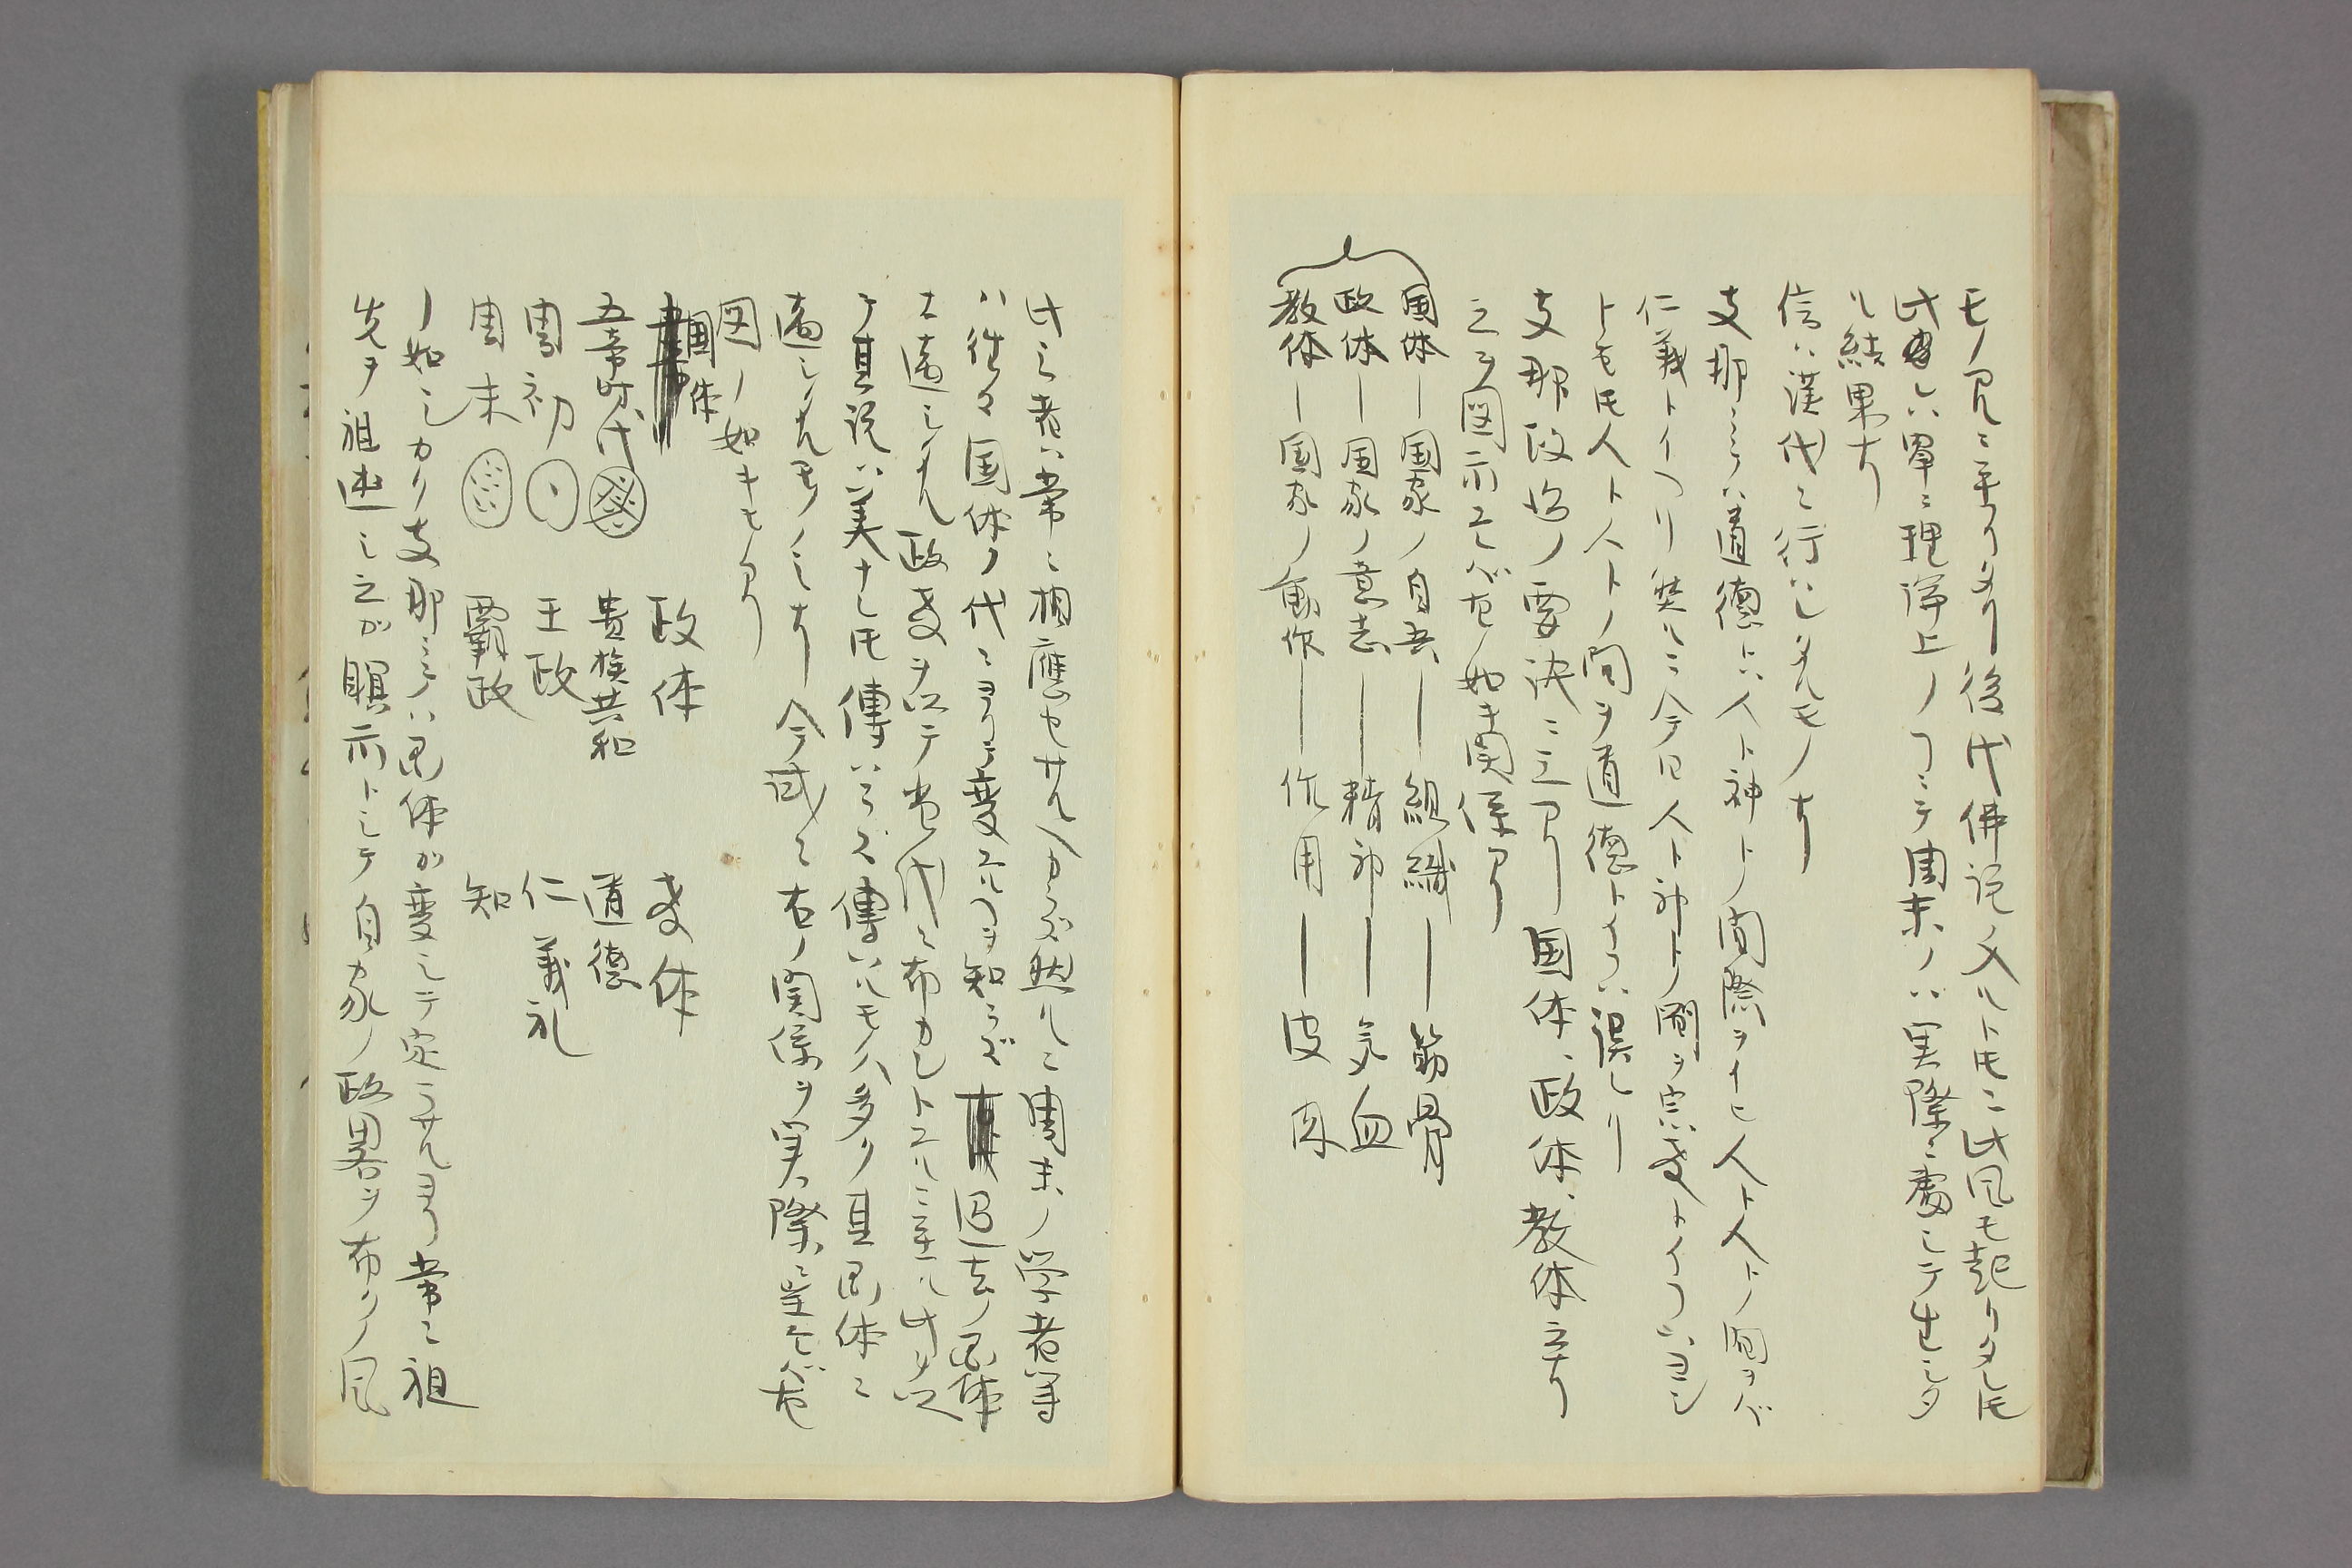 モノアルニ至リタリ後代佛説入ルトモニ此風モ起リタレ𪜈
此レハ単ニ理論上ノコニテ周末ノハ実際ニ處シテ生シタ
ル結果ナリ
信ハ漢代ニ行ハレタルモノナリ
支那ニテハ道德トハ人ト神トノ間際ヲイヒ人ト人トノ間ヲバ
仁義トイフリ然ルニ今日人ト神トノ間ヲ宗教トイフハヨシ
トモ𪜈人ト人トノ間ヲ道德トイフハ誤レリ
支那政治ノ要決ニ三アリ国体、政体、教体ナリ
之ヲ図示スレバ左ノ如キ関係アリ
国体―国家ノ自吾―組織―筋骨
政体―国家ノ意志―精神―気血
教体―国家ノ動作―作用―皮肉
此三者ハ常ニ相應セサルヘカラズ然ルニ周末ノ学者等
ハ往々国体ノ代ニヨリテ変スルヿヲ知ラズ過去ノ国体
ニ適シタル政教ヲ以テ當代ニ布カレトスルニ至ル此ヲ以
テ其説ハ美ナレ𪜈傳ハラズ傳ハルモノハ多ク其国体ニ
適シタルモノノミナリ今試ニ右ノ関係ヲ実際ニ呈セバ左
図ノ如キモアリ
国体 政体 教体
五帝時代 貴族共和 道德
周初 王政 仁義礼
周末 覇政 知
ノ如シカク支那ニテハ国体カ変シテ定ラサルヨリ常ニ祖
先ヲ祖述シ之カ瞑示トシテ自家ノ政略ヲ布クノ風